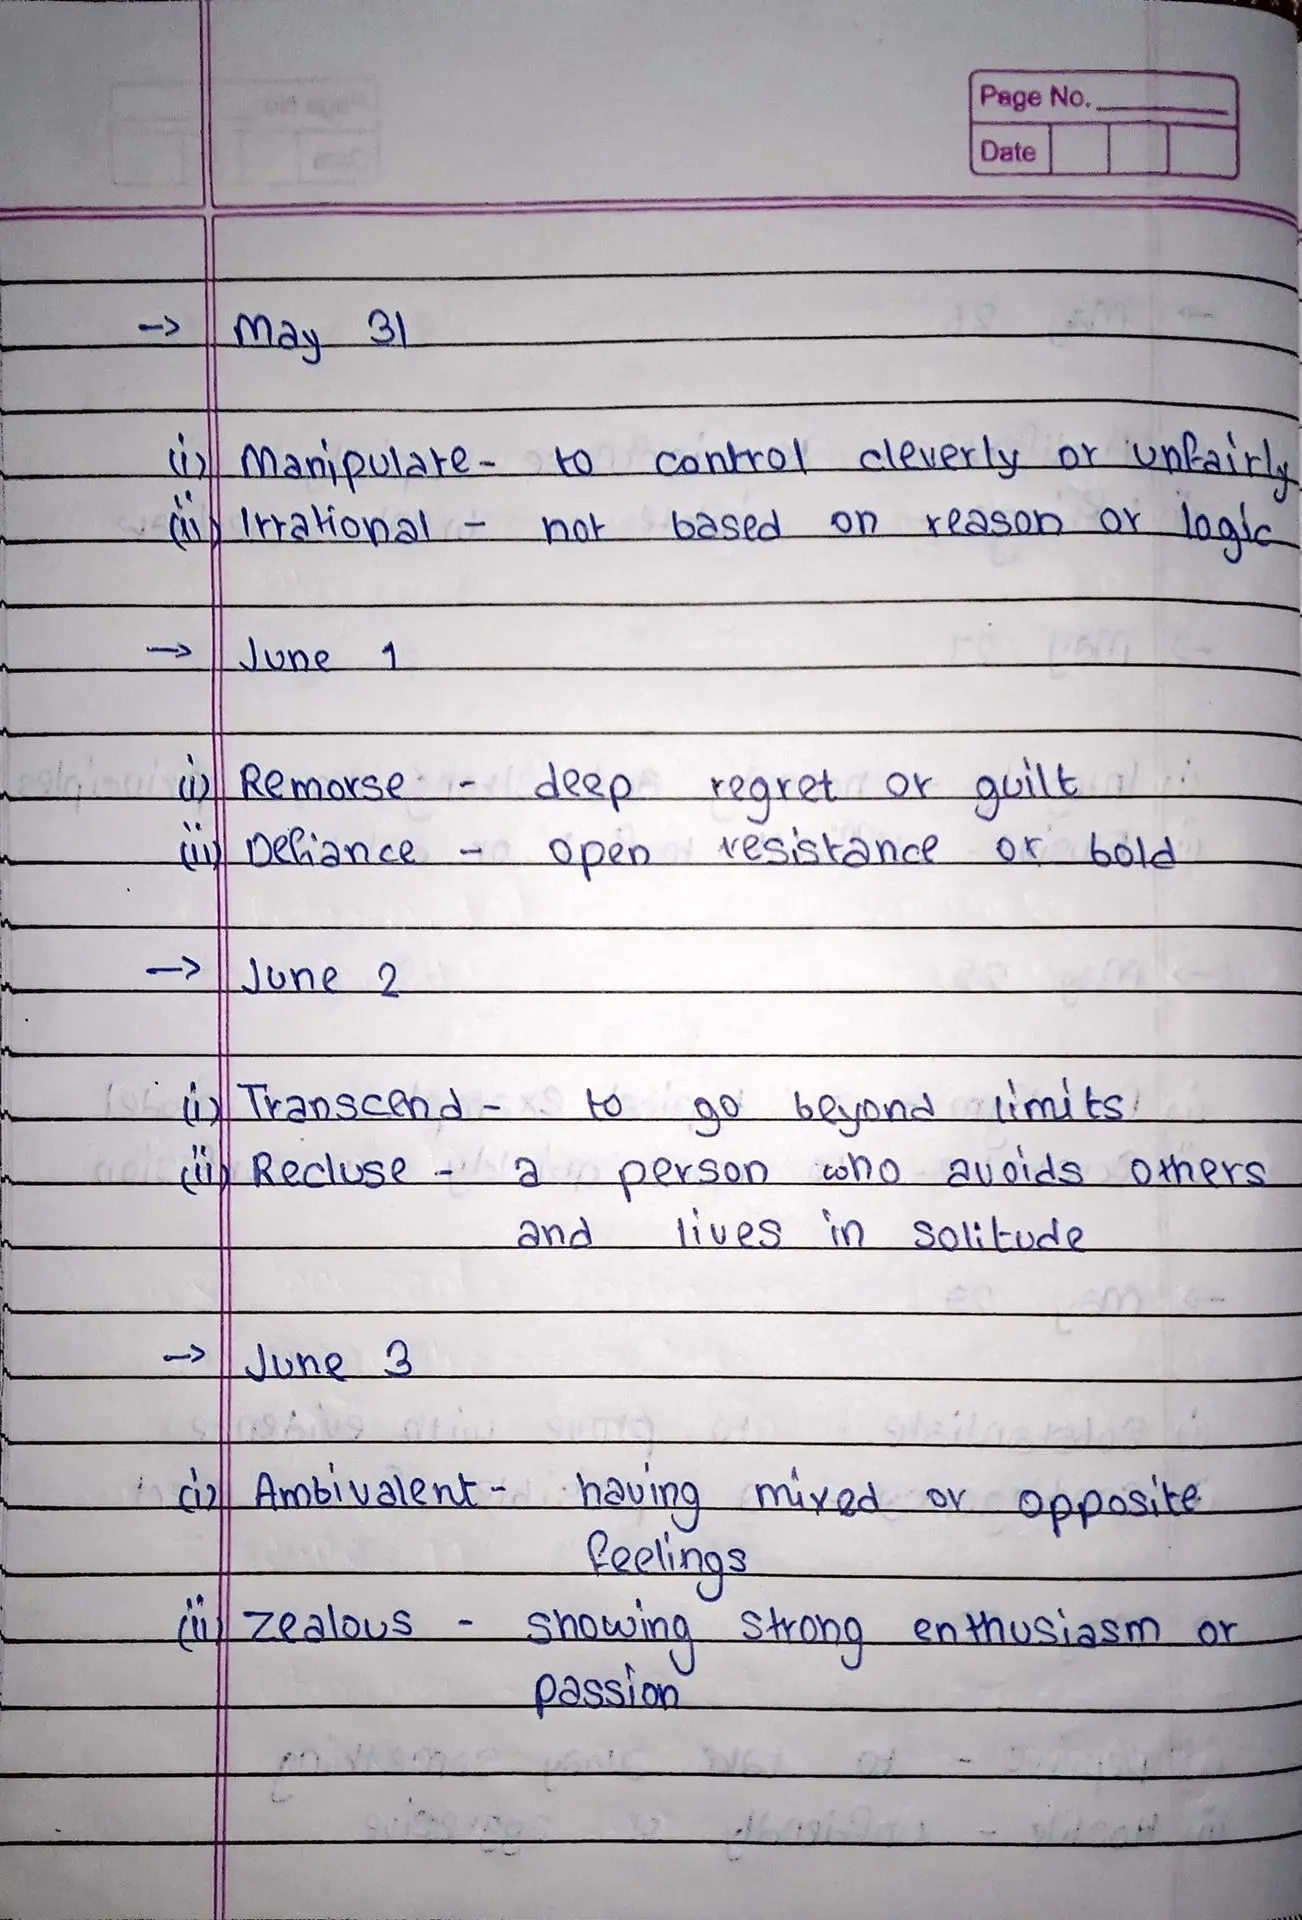 Page No.
Date
-> May 31
(i) Manipulate - to control cleverly or unfairly
(ii) Irrational - not based on reason or logic
-> June 1
(i) Remorse - deep regret or guilt
(ii) Defiance - open resistance or bold
-> June 2
(i) Transcend - to go beyond limits
(ii) Recluse - a person who avoids others
and lives in solitude
-> June 3
(i) Ambivalent - having mixed or opposite
feelings
(ii) Zealous - showing strong enthusiasm or
passion